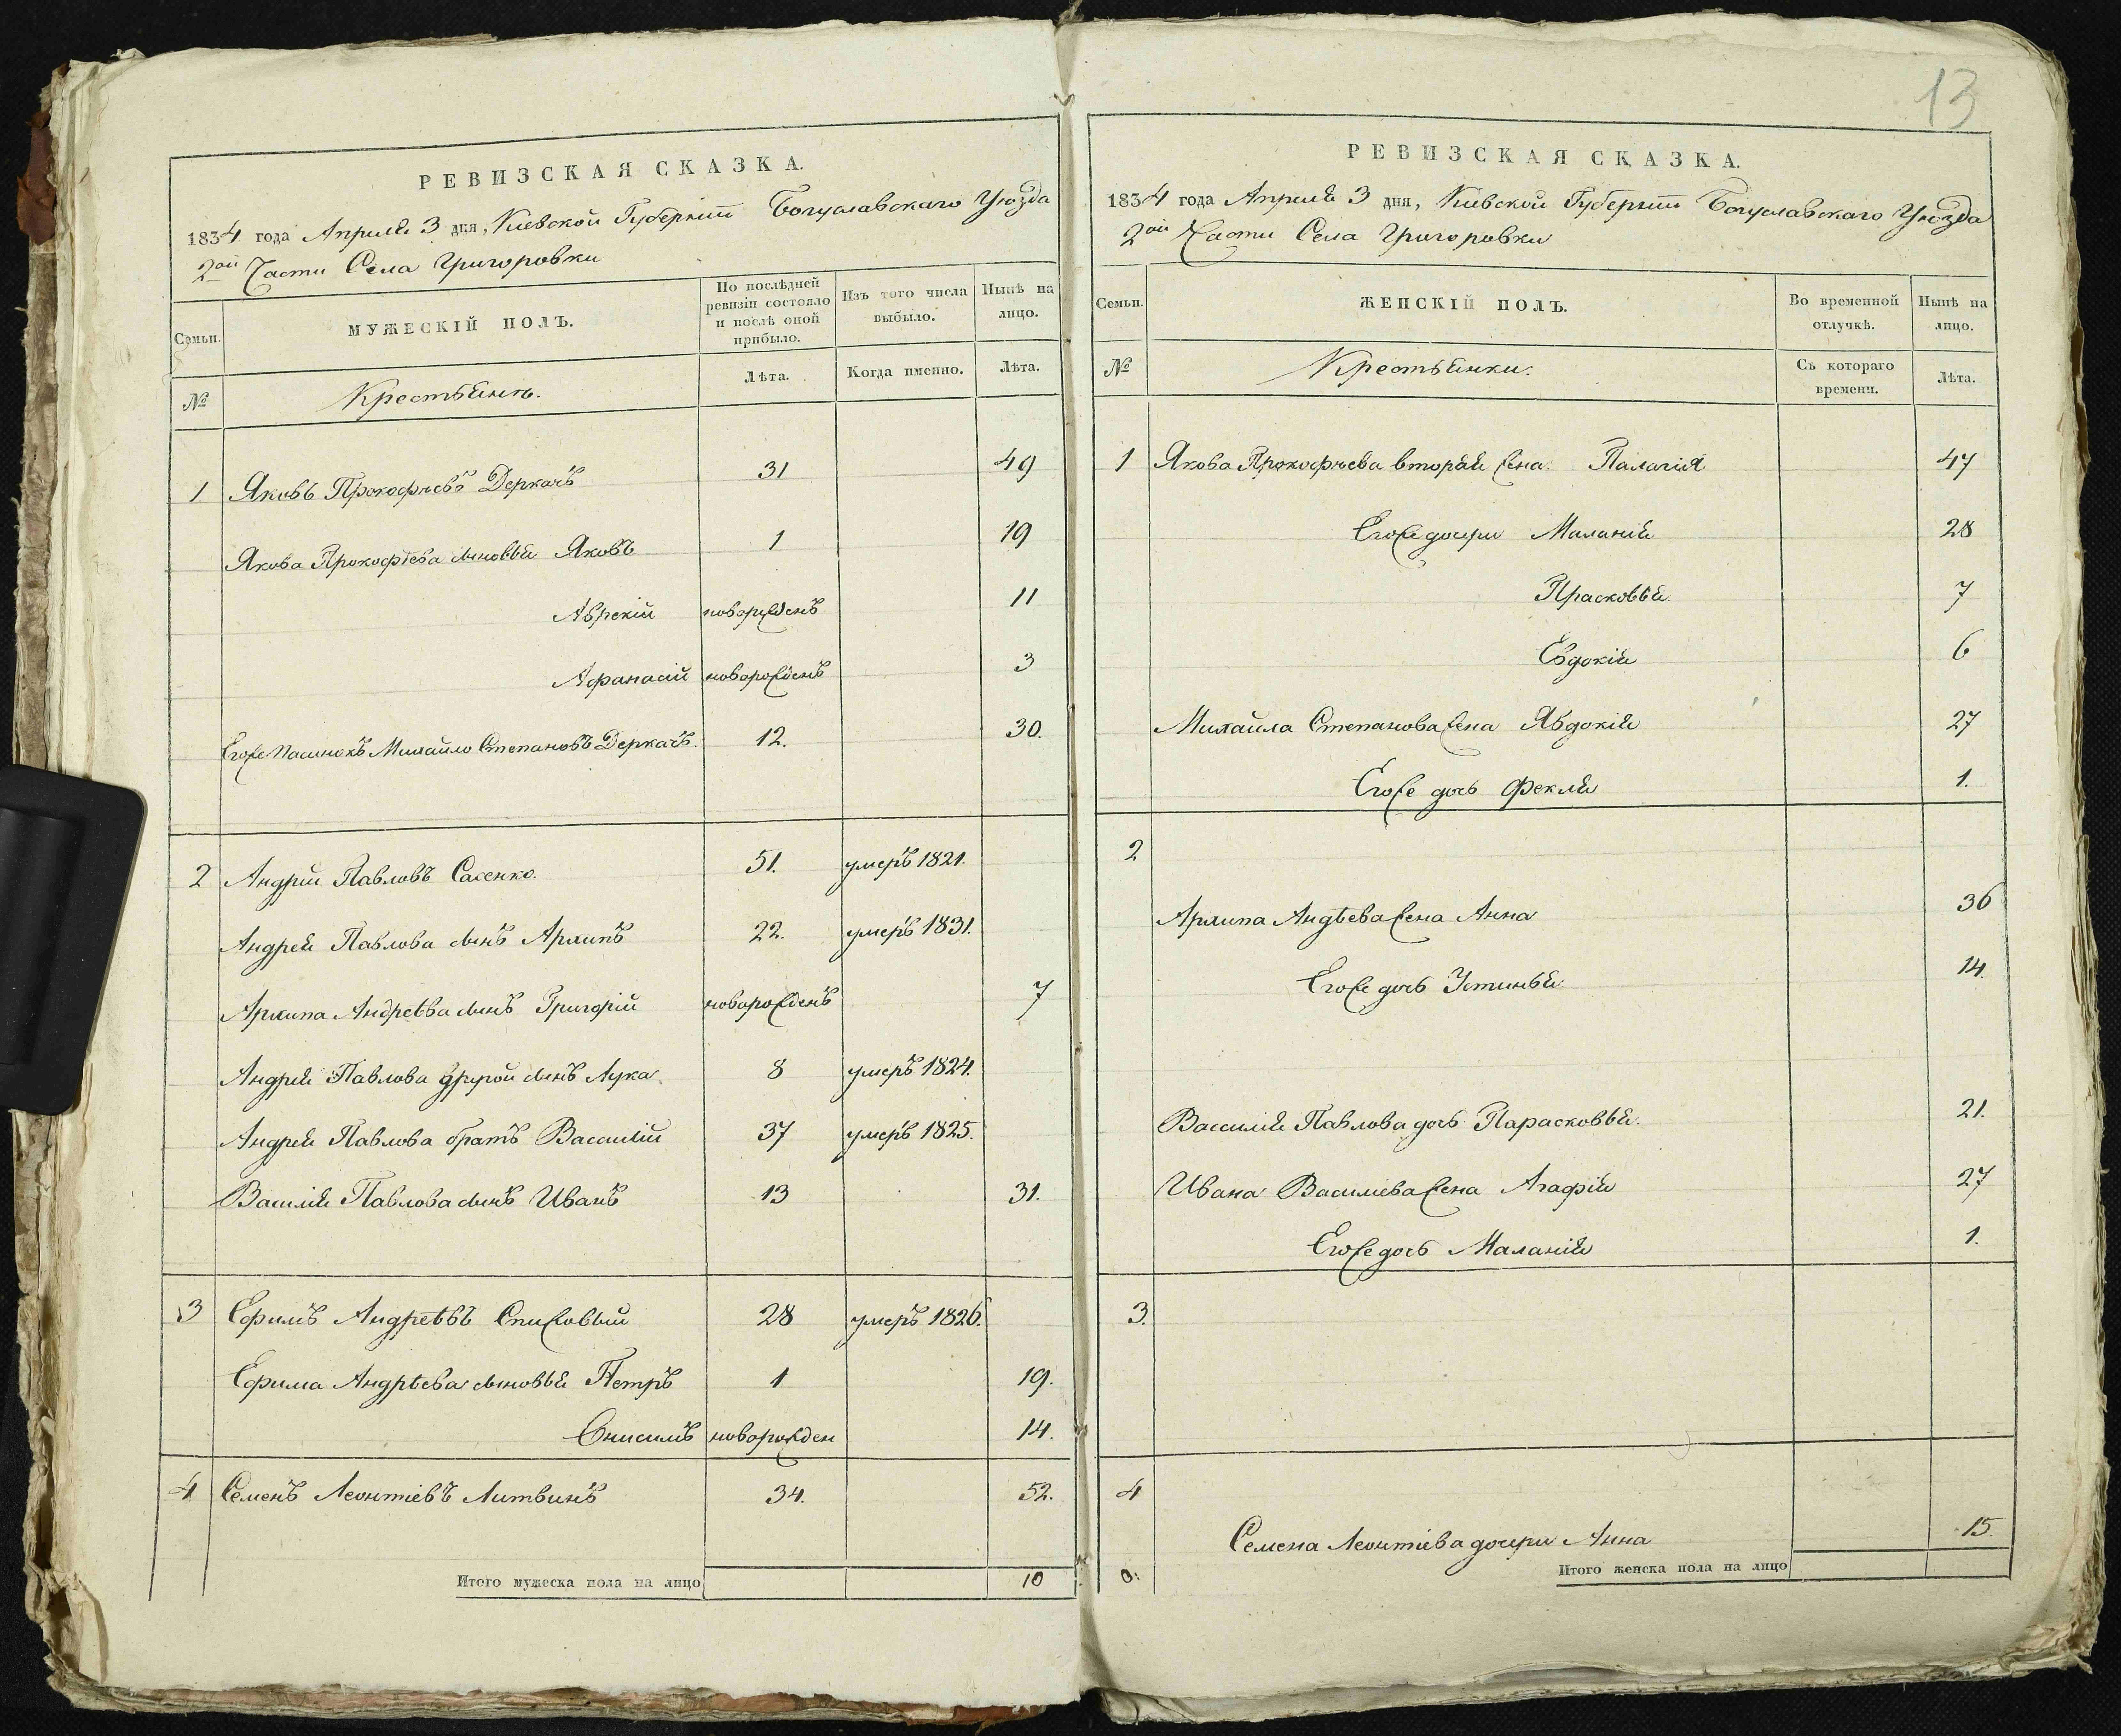 13
РЕВИЗСКАЯ СКАЗКА.
1834 года Апреля 3 дня, Киевской Губернии Богуславскаго Уѣзда
2ой Части Села Григоровки
Семьи.
МУЖЕСКІЙ ПОЛЪ.
По послѣдней ревизіи состояло и послѣ оной прибыло.
Изъ того числа выбыло.
Нынѣ на лицо.
№
Крестьянъ.
Лѣта.
Когда именно.
Лѣта.
1 Яковъ Прокофьевъ Деркачъ 31 49
Якова Прокофіева сыновья Яковъ 1 19
Аврекій новорожденъ 11
Афанасій новорожденъ 3
Егоже пасинокъ Михайло Степановъ Деркачъ. 12. 30.
2 Андрій Павловъ Сасенко. 51. умеръ 1821.
Андрея Павлова сынъ Архипъ 22. умеръ 1831.
Архипа Андреѣва сынъ Григорій новорожденъ 7
Андрея Павлова другой сынъ Лука 8 умеръ 1824.
Андрея Павлова братъ Василій 37 умеръ 1825.
Василія Павлова сынъ Иванъ 13 31.
3 Ефимъ Андреѣвъ Спижовый 28 умеръ 1826.
Ефима Андрѣева сыновья Петръ 1 19.
Онисимъ новорожден 14.
4 Семенъ Леонтіевъ Литвинъ 34. 52.
Итого мужеска пола на лицо 10
РЕВИЗСКАЯ СКАЗКА.
1834 года Апреля 3 дня, Кіевской Губерніи Богуславскаго Уѣзда
2ой Части Села Григоровки
Семьи.
ЖЕНСКІЙ ПОЛЪ.
Во временной отлучкѣ.
Нынѣ на лицо.
№
Крестьянки.
Съ котораго времени.
Лѣта.
1 Якова Прокофьева вторая жена Палагія 47
Егоже дочери Маланія 28
Прасковья 7
Евдокія 6
Михайла Степанова жена Явдокія 27
Егоже дочь Фекля 1.
2
Архипа Андѣева жена Анна 36
Егоже дочь Устинья 14.
Василія Павлова дочь Парасковья. 21.
Ивана Василіева жена Агафія 27
Егоже дочь Маланія 1.
3.
4
Семена Леонтіева дочери Анна 15.
Итого женска пола на лицо